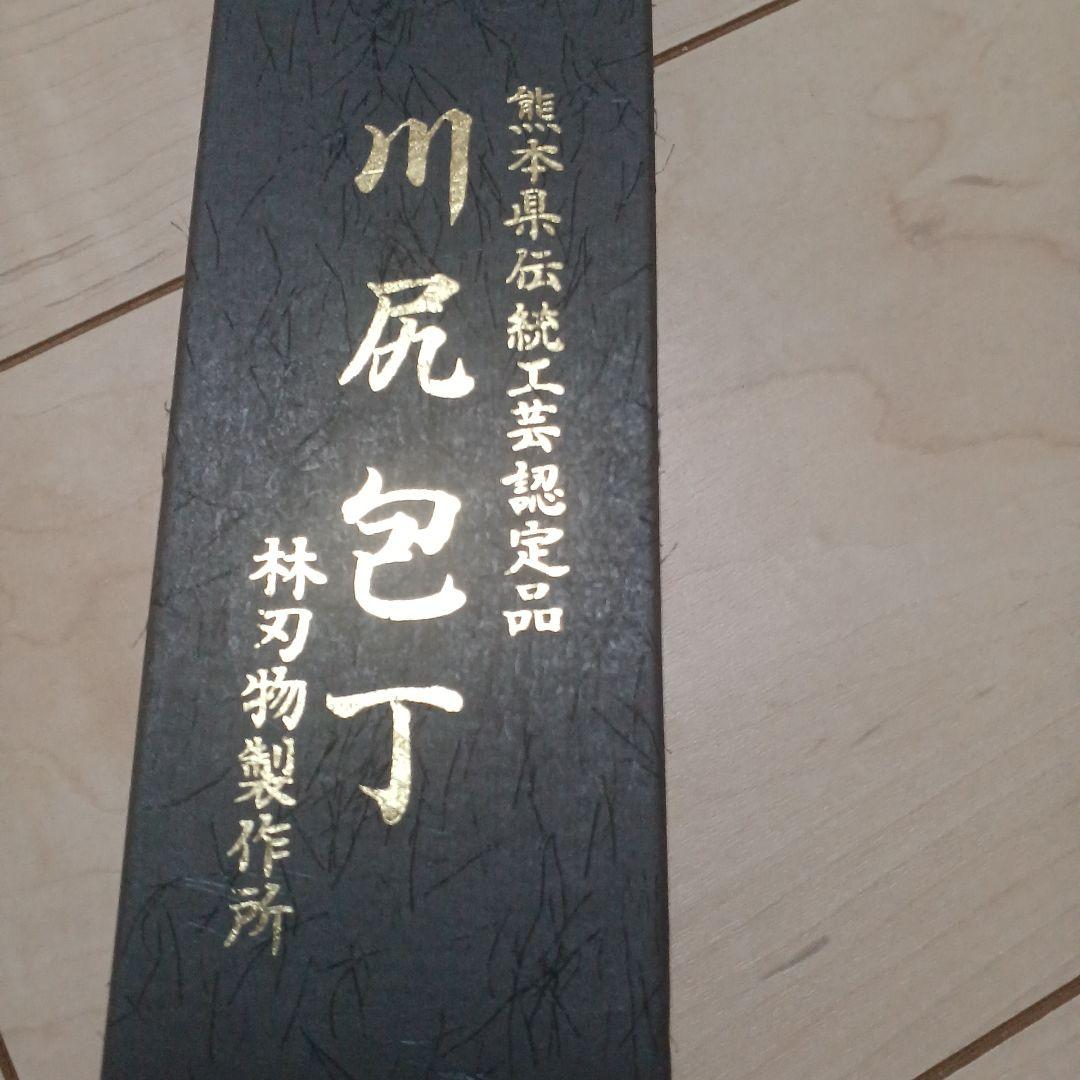 熊本県伝統工芸認定品
川尻包丁
林刃物製作所